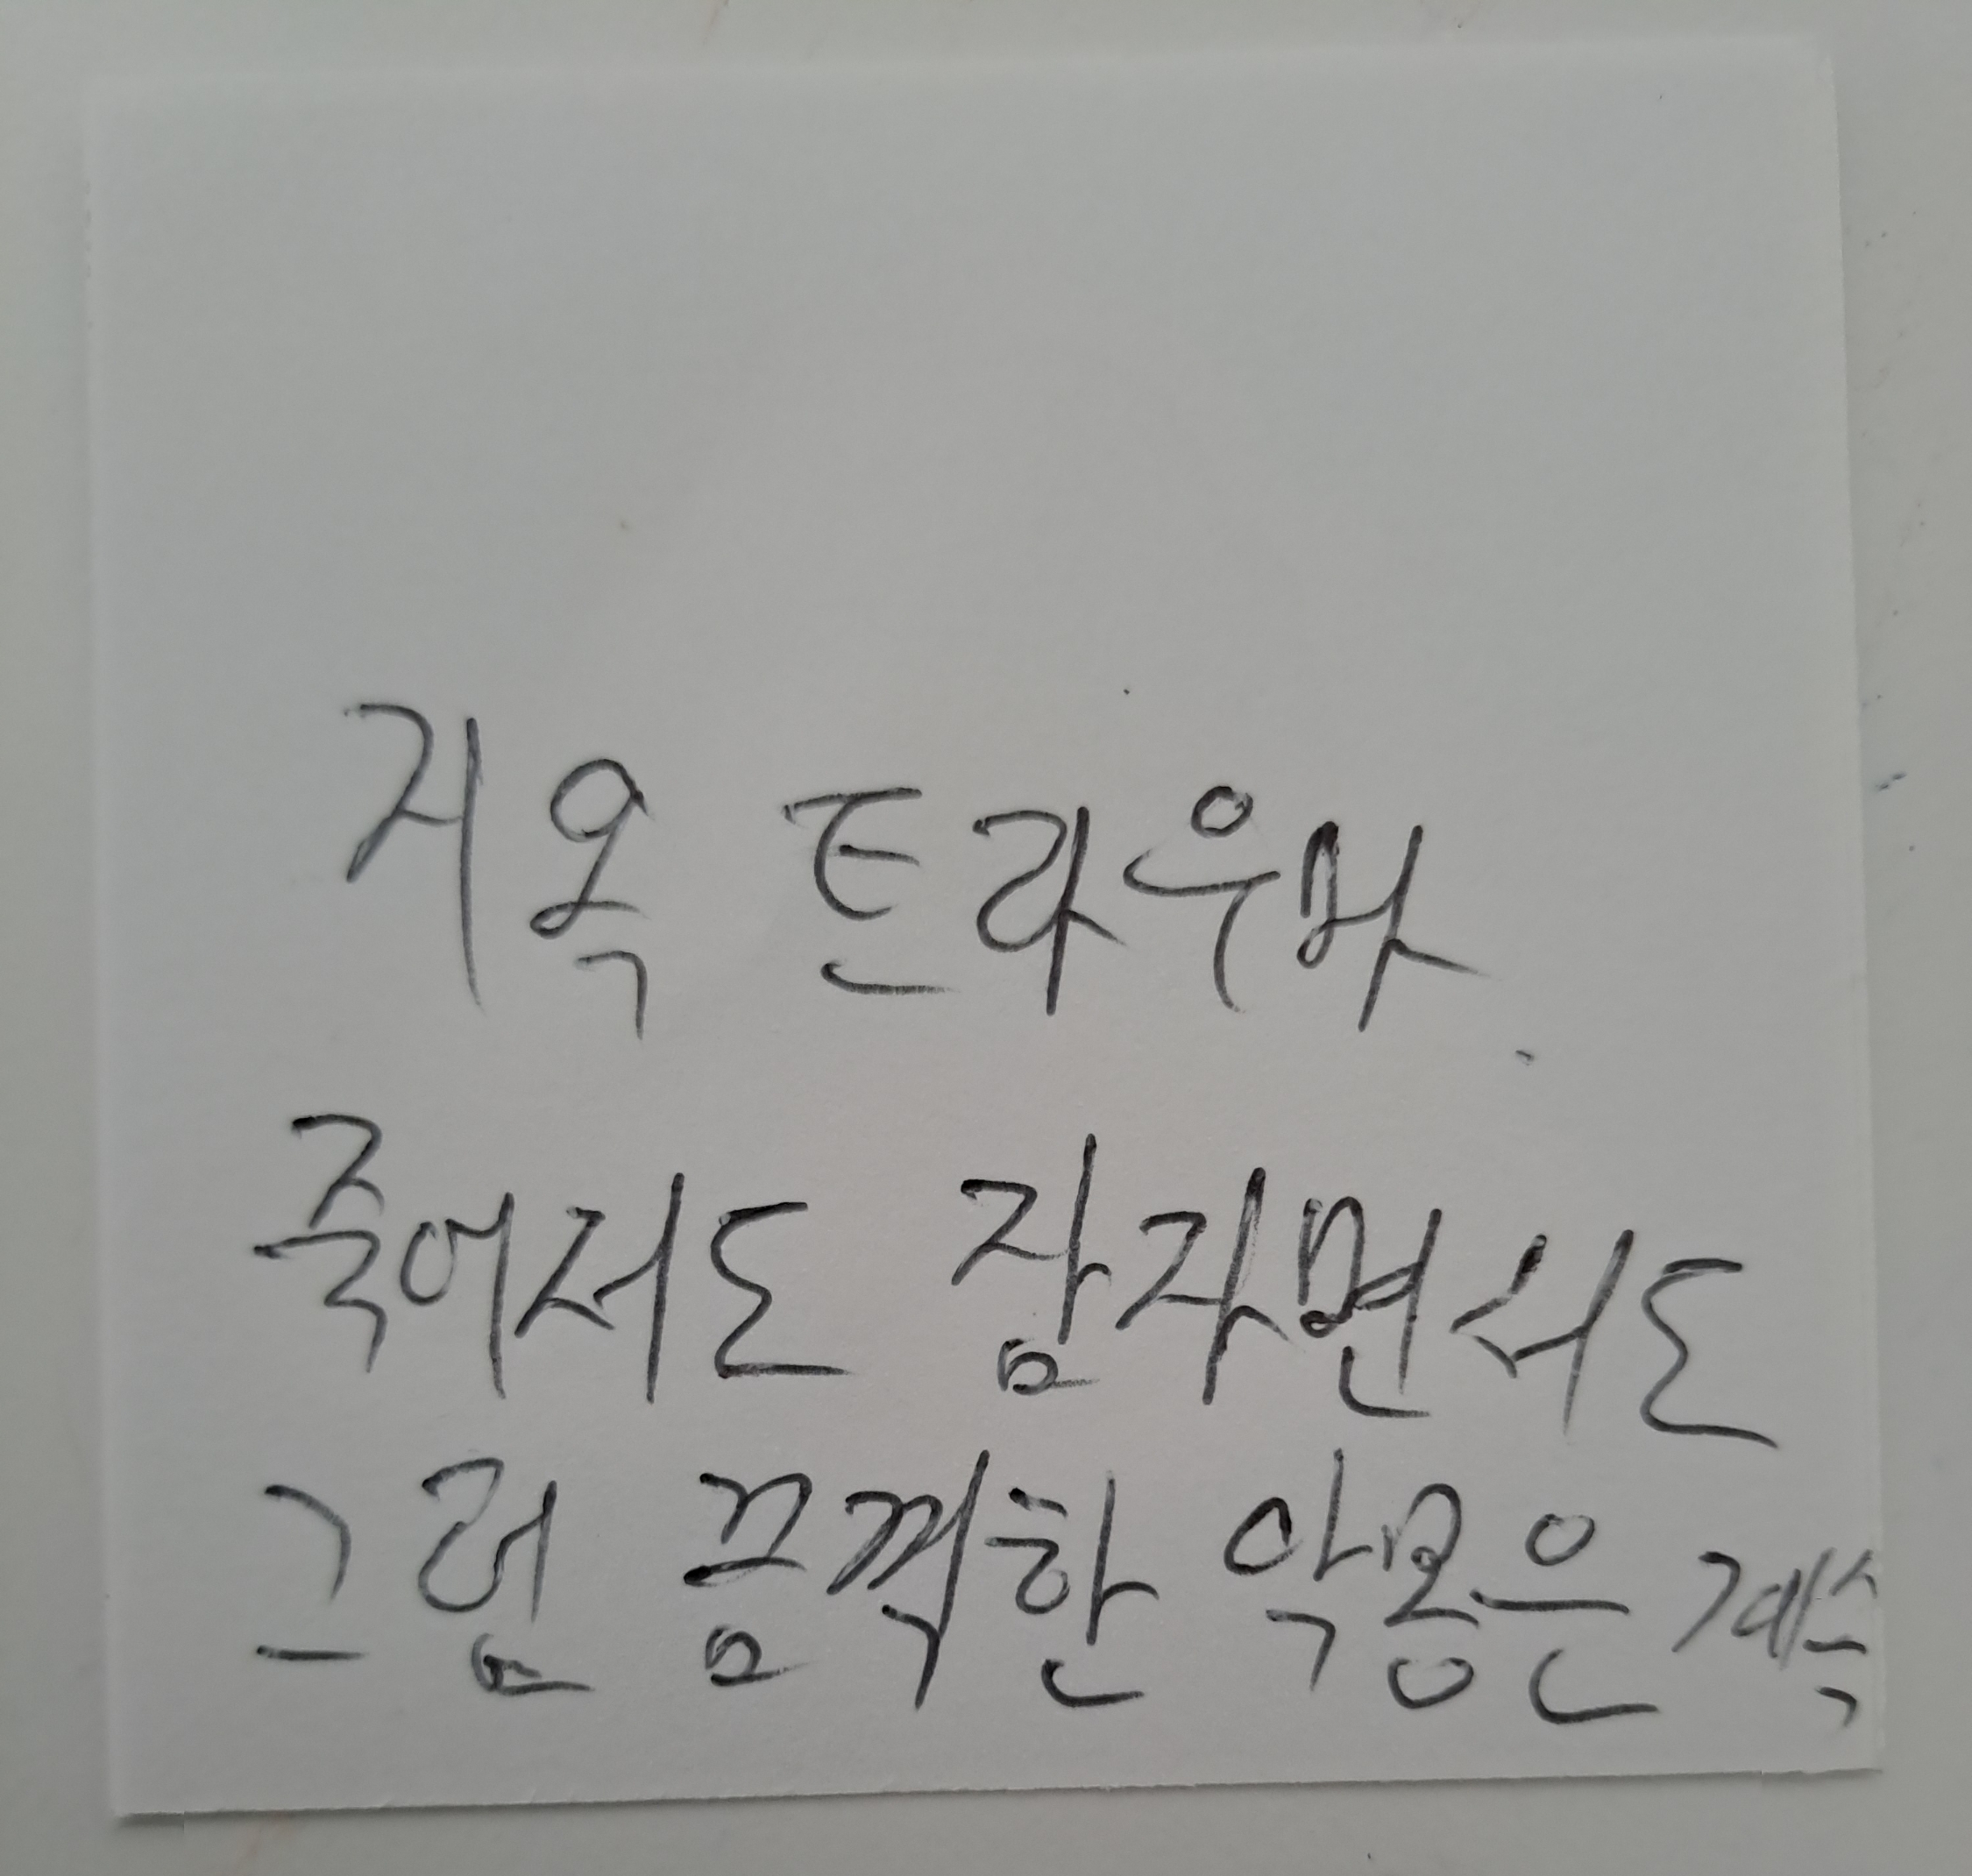 지옥 트라우마.
죽어서도 잠자면서도
그럼 끔찍한 악몽은 계속